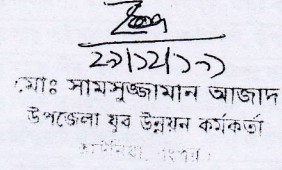 ২৯।১২।১৩
মোঃ সামসুজ্জামান আজাদ
উপজেলা যুব উন্নয়ন কর্মকর্তা